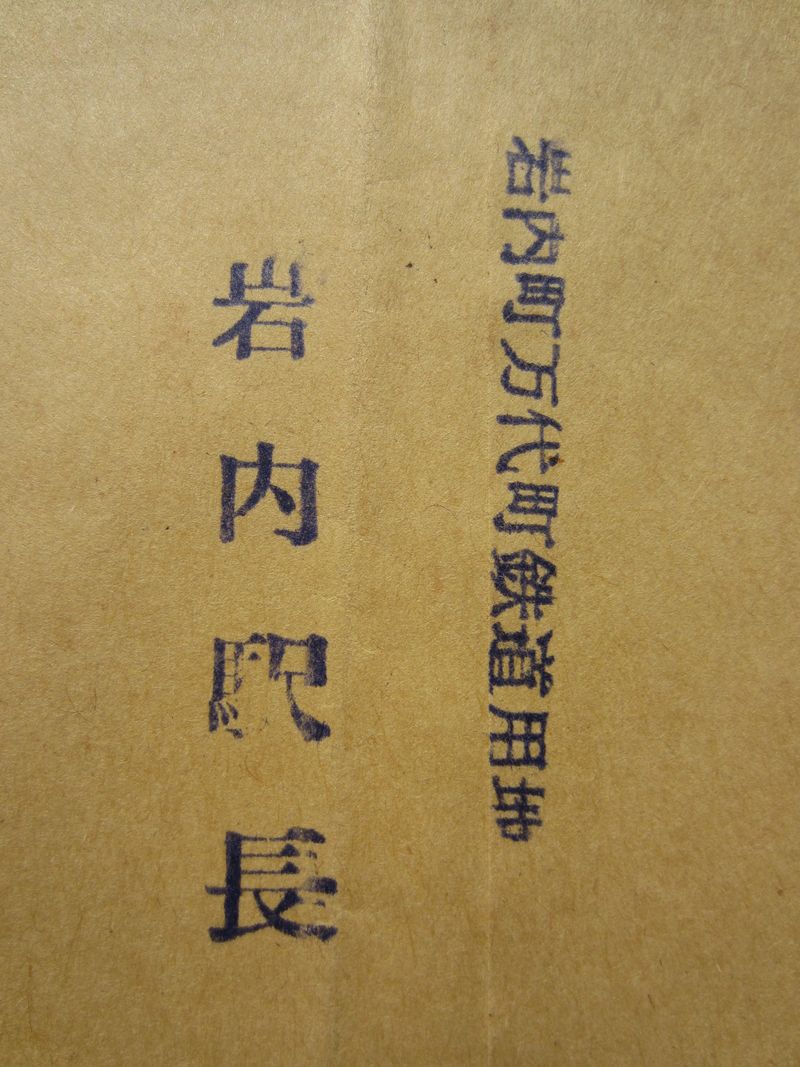 岩内町万代町鉄道用地
岩内駅長